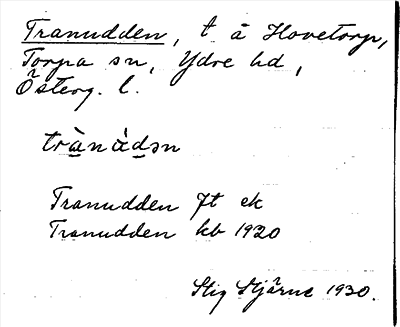 Tranudden, t. å Hovetorp,
Torpa sn, Ydre hd,
Österg. l.
trànádən
Tranudden Jt ek
Tranudden kb 1920
Stig Stjärne 1930.